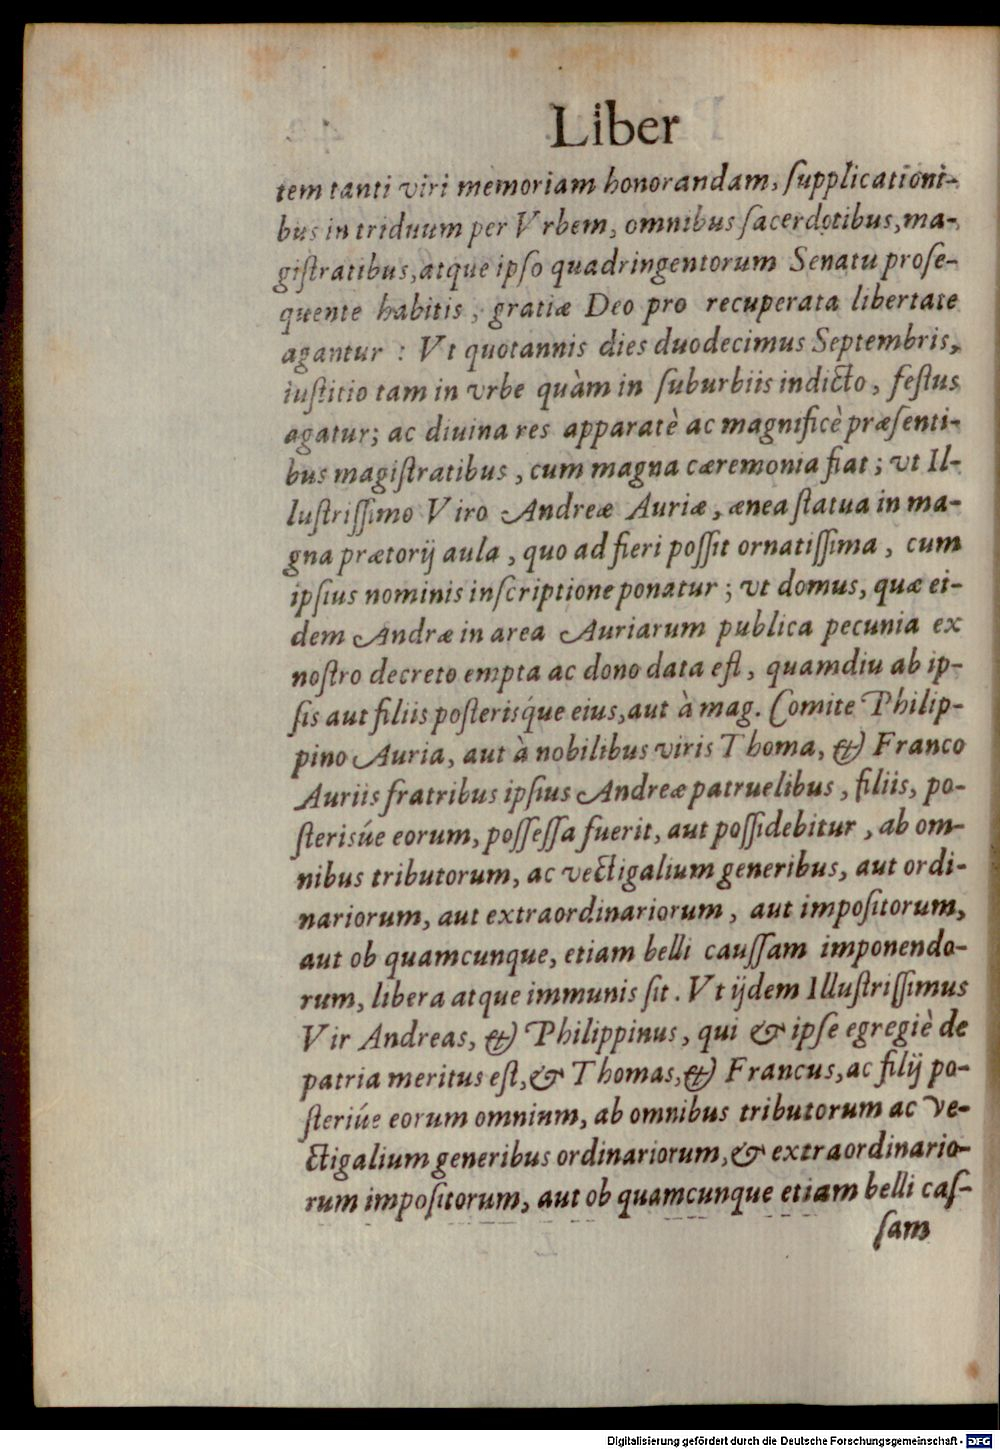 Liber
tem tanti viri memoriam honorandam, ſupplicationi-
bus in triduum per Vrbem, omnibus ſacerdotibus, ma-
giſtratibus, atque ipſo quadringentorum Senatu proſe-
quente habitis, gratiæ Deo pro recuperata libertate
agantur : Vt quotannis dies duodecimus Septembris,
iuſtitio tam in vrbe quàm in ſuburbiis indicto, feſtus
agatur; ac diuina res apparatè ac magnificè præſenti-
bus magiſtratibus, cum magna cæremonia fiat; vt Il-
luſtriſſimo Viro Andreæ Auriæ, ænea ſtatua in ma-
gna prætorij aula, quo ad fieri poſſit ornatiſſima, cum
ipſius nominis inſcriptione ponatur; vt domus, quæ ei-
dem Andræ in area Auriarum publica pecunia ex
noſtro decreto empta ac dono data eſt, quamdiu ab ip-
ſis aut filiis poſterisq́ue eius, aut à mag. Comite Philip-
pino Auria, aut à nobilibus viris Thoma, & Franco
Auriis fratribus ipſius Andreæ patruelibus, filiis, po-
ſterisúe eorum, poſſeſſa fuerit, aut poſſidebitur, ab om-
nibus tributorum, ac vectigalium generibus, aut ordi-
nariorum, aut extraordinariorum, aut impoſitorum,
aut ob quamcunque, etiam belli cauſſam imponendo-
rum, libera atque immunis ſit. Vt ijdem Illuſtriſſimus
Vir Andreas, & Philippinus, qui & ipſe egregiè de
patria meritus eſt, & Thomas, & Francus, ac filij po-
ſteriúe eorum omnium, ab omnibus tributorum ac ve-
ctigalium generibus ordinariorum, & extraordinario-
rum impoſitorum, aut ob quamcunque etiam belli caſ-
ſam
Digitalisierung gefördert durch die Deutsche Forschungsgemeinschaft - DFG